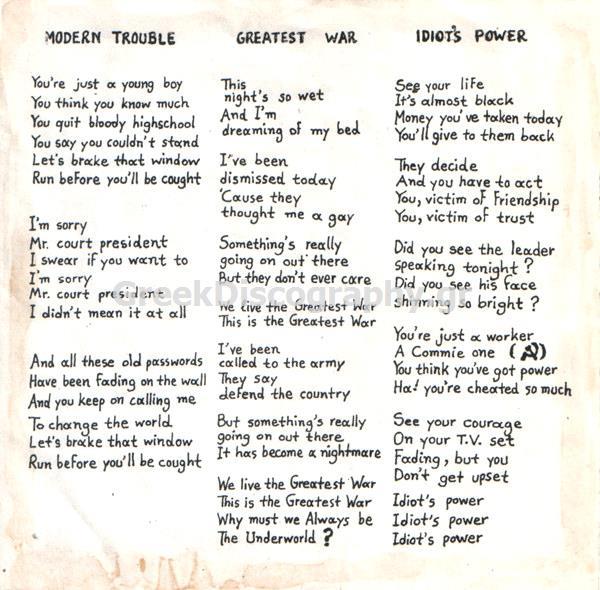 MODERN TROUBLE
You're just a young boy
You think you know much
You quit bloody highschool
You say you couldn't stand
Let's brake that window
Run before you'll be cought
I'm sorry
Mr. court president
I swear if you want to
I'm sorry
Mr. court president
I didn't mean it at all
And all these old passwords
Have been fading on the wall
And you keep on calling me
To change the world
Let's brake that window
Run before you'll be cought
GREATEST WAR
This
night's so wet
And I'm
dreaming of my bed
I've been
dismissed today
'Cause they
thought me a gay
Something's really
going on out there
But they don't ever care
We live the Greatest War
This is the Greatest War
I've been
called to the army
They say
defend the country
But something's really
going on out there
It has become a nightmare
We live the Greatest War
This is the Greatest War
Why must we Always be
The Underworld ?
IDIOT'S POWER
See your life
It's almost black
Money you've taken today
You'll give to them back
They decide
And you have to act
You, victim of Friendship
You, victim of trust
Did you see the leader
speaking tonight ?
Did you see his face
shinning so bright ?
You're just a worker
A Commie one (☭)
You think you've got power
Ha! you're cheated so much
See your courage
On your T.V. set
Fading, but you
Don't get upset
Idiot's power
Idiot's power
Idiot's power
GreekDiscography.gr